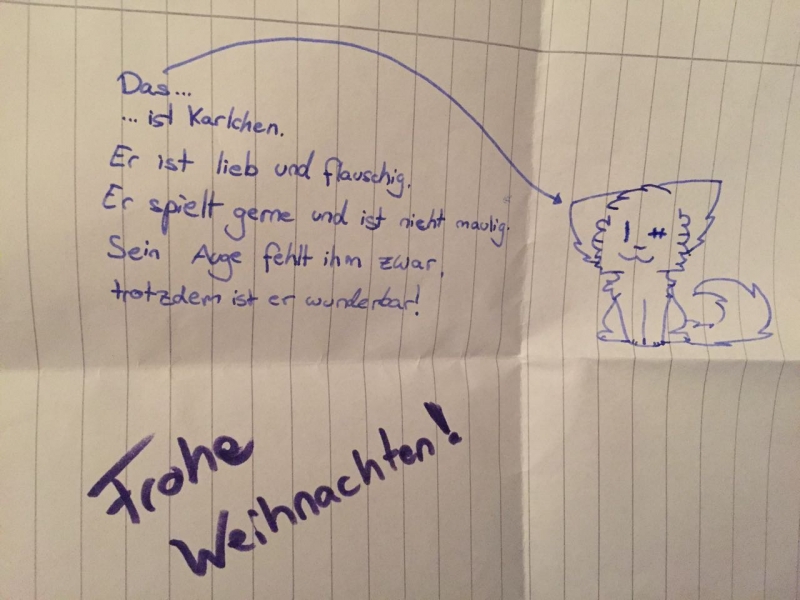 Das...
... ist Karlchen.
Er ist lieb und flauschig.
Er spielt gerne und ist nicht maulig.
Sein Auge fehlt ihm zwar,
trotzdem ist er wunderbar!
Frohe
Weihnachten!